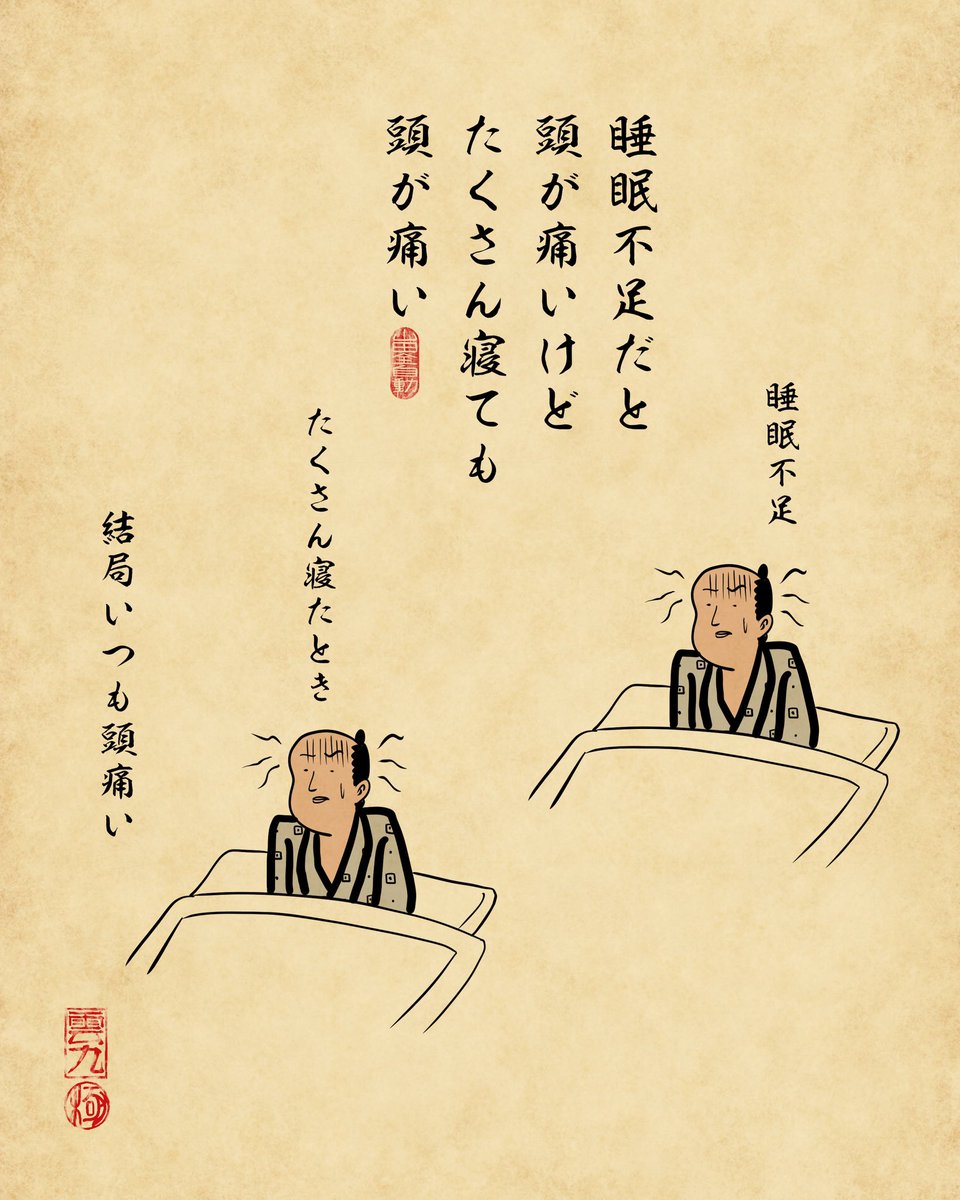 睡眠不足だと
頭が痛いけど
たくさん寝ても
頭が痛い
睡眠不足
たくさん寝たとき
結局いつも頭痛い